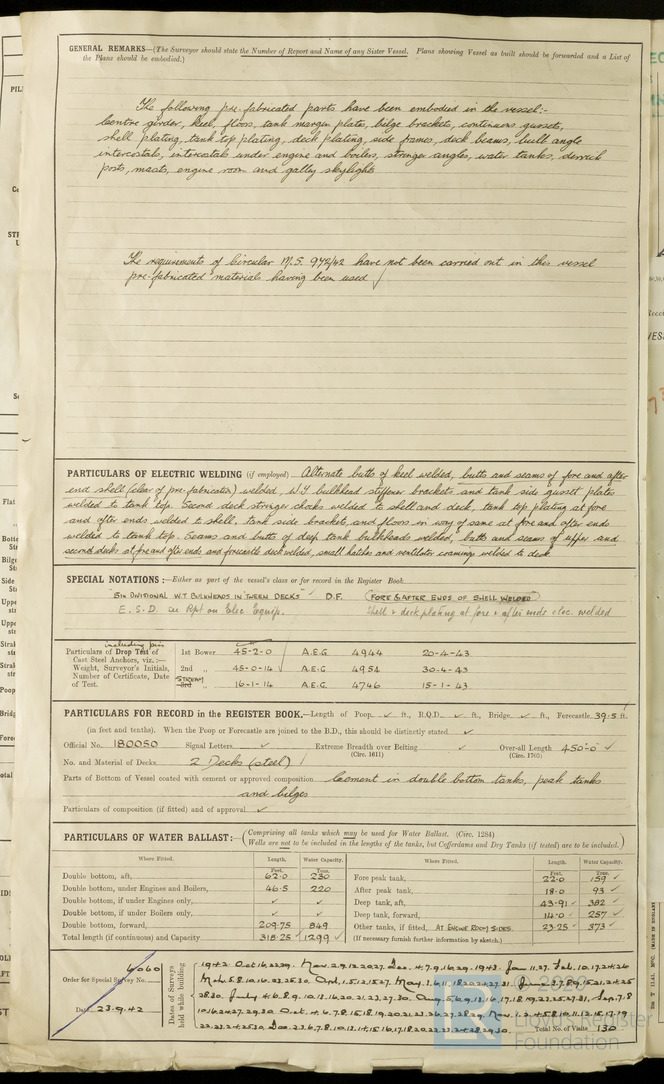 GENERAL REMARKS—(The Surveyor should state the Number of Report and Name of any Sister Vessel. Plans showing Vessel as built should be forwarded and a List of
the Plans should be embodied.)
The following pre-fabricated parts have been embodied in the vessel:-
Centre girder, keel, floors, tank margin plate, bilge brackets, continuous gussets,
shell plating, tank top plating, deck plating, side frames, deck beams, bulb angle
intercostals, intercostals under engine and boilers, stringer angles, water tanks, derrick
posts, masts, engine room and galley skylights
The requirements of Circular M.S. 972/42 have not been carried out in this vessel
pre-fabricated materials having been used
PARTICULARS OF ELECTRIC WELDING (if employed) Alternate butts of keel welded, butts and seams of fore and after
end shell (clear of pre-fabrication) welded W.T. bulkhead stiffener brackets and tank side gusset plates
welded to tank top. Second deck stringer chocks welded to shell and deck, tank top plating at fore
and after ends welded to shell, tank side brackets and floors in way of same at fore and after ends
welded to tank top. Seams and butts of deep tank bulkheads welded, butts and seams of upper and
second decks at fore and after ends and forecastle deck welded, small hatches and ventilator coamings welded to deck
SPECIAL NOTATIONS:—Either as part of the vessel's class or for record in the Register Book.
"Six Divisional W.T. Bulkheads in 'Tween Decks" D.F. (Fore & After Ends of Shell Welded)
E.S.D. on Rpt on Elec Equip. Shell & deck plating at fore & after ends elec. welded
including pin
Particulars of Drop Test of
Cast Steel Anchors, viz.:—
Weight, Surveyor's Initials,
Number of Certificate, Date
of Test.
1st Bower 45-2-0 A.E.G 4944 20-4-43
2nd ,, 45-0-14 A.E.G 4954 30-4-43
STREAM 3rd ,, 16-1-14 A.E.G. 4746 15-1-43
PARTICULARS FOR RECORD in the REGISTER BOOK.—Length of Poop ✓ ft., R.Q.D. ✓ ft., Bridge ✓ ft., Forecastle 39.5 ft.
(in feet and tenths). When the Poop or Forecastle are joined to the B.D., this should be distinctly stated ✓
Official No. 180050 Signal Letters ✓ Extreme Breadth over Belting ✓ Over-all Length 450-0 ✓
(Circ. 1611) (Circ. 1703)
No. and Material of Decks 2 Decks (steel)
Parts of Bottom of Vessel coated with cement or approved composition Cement in double bottom tanks, peak tanks
and bilges
Particulars of composition (if fitted) and of approval ✓
PARTICULARS OF WATER BALLAST:— (Comprising all tanks which may be used for Water Ballast. (Circ. 1284)
Wells are not to be included in the lengths of the tanks, but Cofferdams and Dry Tanks (if tested) are to be included.)
Where Fitted. Length. Water Capacity. Where Fitted. Length. Water Capacity.
Feet. Tons. Feet. Tons.
Double bottom, aft, 62.0 230 Fore peak tank, 22.0 159 ✓
Double bottom, under Engines and Boilers, 46.5 220 After peak tank, 18.0 93 ✓
Double bottom, if under Engines only, ✓ ✓ Deep tank, aft, 43.91 ✓ 382 ✓
Double bottom, if under Boilers only, ✓ ✓ Deep tank, forward, 14.0 ✓ 257 ✓
Double bottom, forward, 209.75 849 Other tanks, if fitted, AT ENGINE ROOM SIDES. 23.25 ✓ 373 ✓
Total length (if continuous) and Capacity 318.25 ✓ 1299 ✓ (If necessary furnish further information by sketch.)
Order for Special Survey No. 6060
Date 23.9.42
Dates of Surveys
held while building
Total No. of Visits 130
© 2020
LR
Lloyd's Register
Foundation